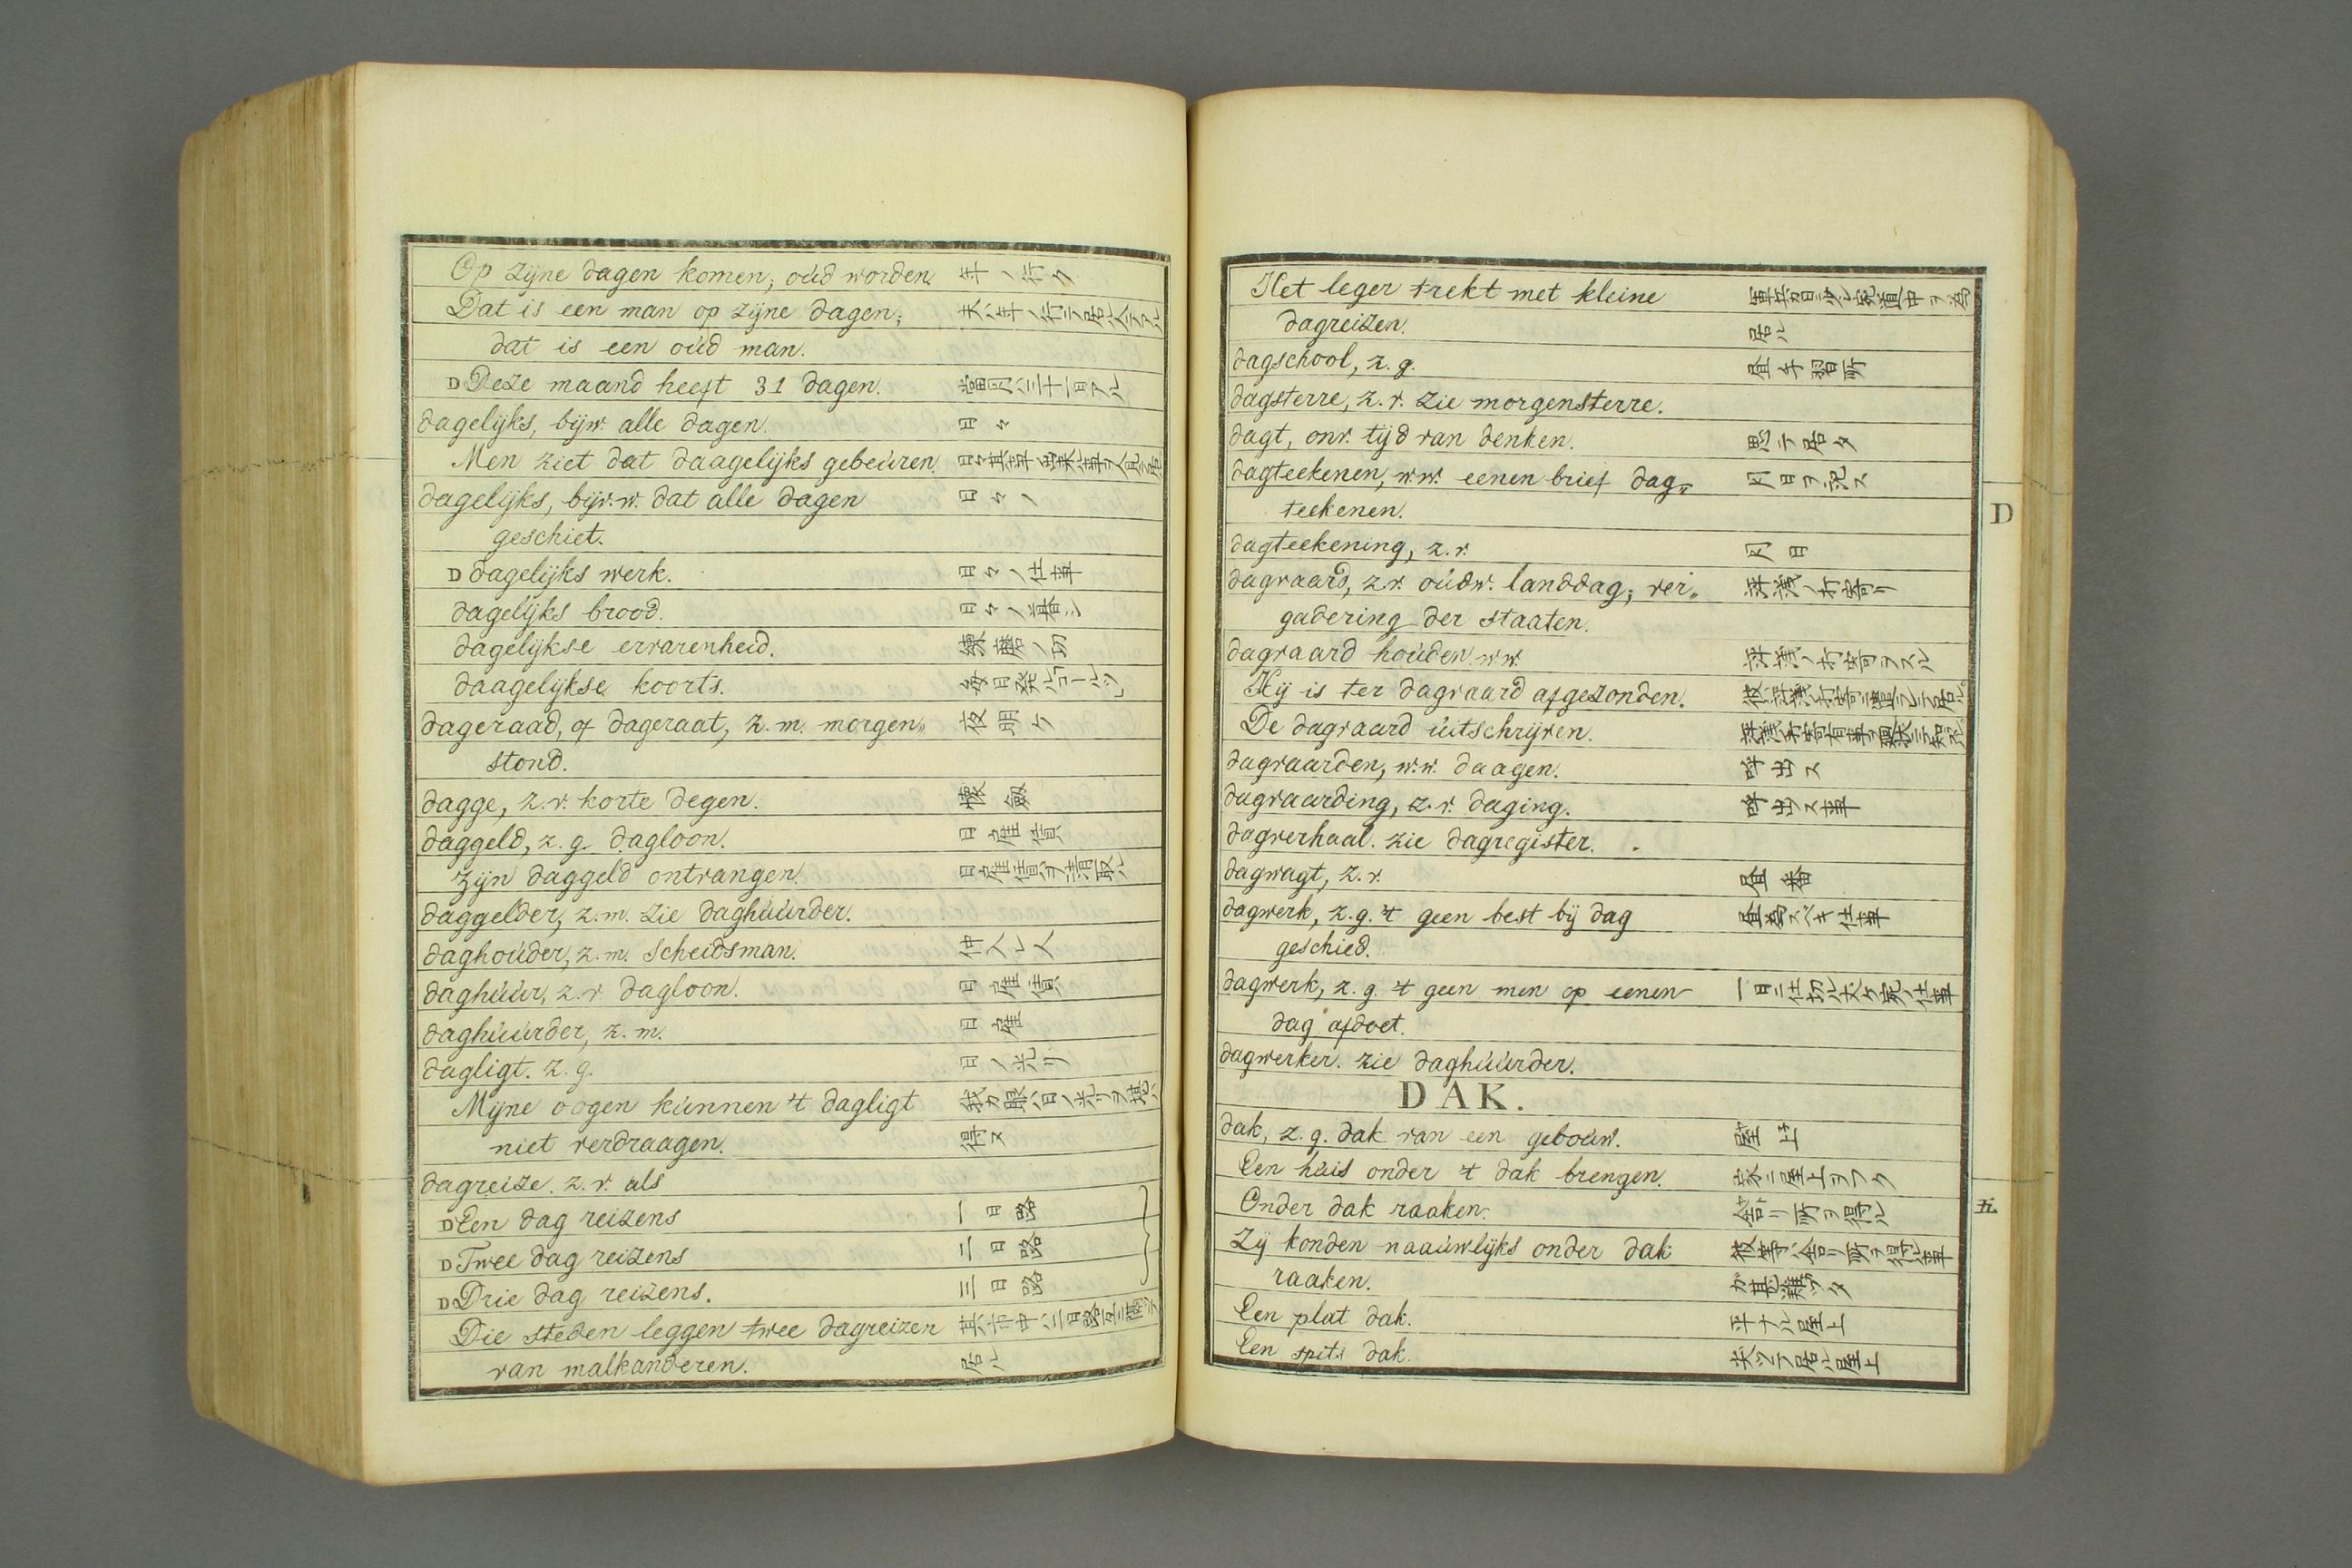 Op zijne dagen komen; oúd worden. 年ノ行ク
Dat is een man op zijne dagen; 夫ハ年ノ行テ居ル人テアル
dat is een oúd man.
D Deze maand heeft 31 dagen. 當月ハ三十一日アル
dagelijks, bijw. alle dagen. 日々
Men ziet dat daagelijks gebeúren.
dagelijks, bijv. w. dat alle dagen 日々ノ
geschiet.
D dagelijks werk. 日々ノ仕事
dagelijks brood. 日々ノ暮シ
dagelijkse ervarenheid. 練磨ノ功
daagelijkse koorts. 毎日発ル
dageraad, of dageraat, z. m. morgen„ 夜明ケ
stond.
dagge, z. v. korte degen. 懐劔
daggeld, z. g. dagloon. 日雇賃
Zijn daggeld ontvangen. 日雇賃ヲ請取ル
daggelder, z. m. zie daghúúrder.
daghoúder, z. m. Scheidsman. 仲人レ人
daghúúr, z. v. dagloon. 日雇賃
daghúúrder, z. m. 日雇
dagligt. z. g. 日ノ光リ
Mijne oogen kúnnen 't dagligt 我カ眼ハ日ノ光リヲ堪ヘ
niet verdraagen. 得ヌ
dagreize. z. v. als
D Een dag reizens 一日路
D Twee dag reizens 二日路
D Drie dag reizens. 三日路
Die steden leggen twee dagreizen 其市中ハ二日路互ニ隔ツテ
van malkanderen. 居ル
Het leger trekt met kleine
dagreizen. 居ル
dagschool, z. g. 昼手習所
dagsterre, z. v. zie morgensterre.
dagt, onv. tijd van denken. 思テ居タ
dagteekenen, w. w. eenen brief dag„ 月日ヲ記ス
teekenen.
dagteekening, z. v. 月日
dagvaard, z. v. oúdw. landdag; ver„ 評議ノ打寄リ
gadering der staaten.
dagvaard hoúden w. w. 評議ノ打寄ヲスル
Hij is ter dagvaard afgezonden.
De dagvaard úitschrijven.
dagvaarden, w. w. daagen. 呼出ス
dagvaarding, z. v. daging. 呼出ス事
dagverhaal. zie dagregister.
dagwagt, z. v. 昼番
dagwerk, z. g. 't geen best bij dag 昼為スベキ仕事
geschied.
dagwerk, z. g. 't geen men op eenen 一日ニ仕切ル丈ケ宛ノ仕事
dag afdoet.
dagwerker. zie daghúúrder.
DAK.
dak, z. g. dak van een geboúw. 屋上
Een húis onder 't dak brengen. 家ニ屋上ヲフク
Onder dak raaken. 舎リ所ヲ得ル
Zij konden naaúwlijks onder dak 彼等ハ舎リ所ヲ得ル事
raaken. カ甚難カツタ
Een plat dak. 平ナル屋上
Een spits dak. 尖ツテ居ル屋上
D
五